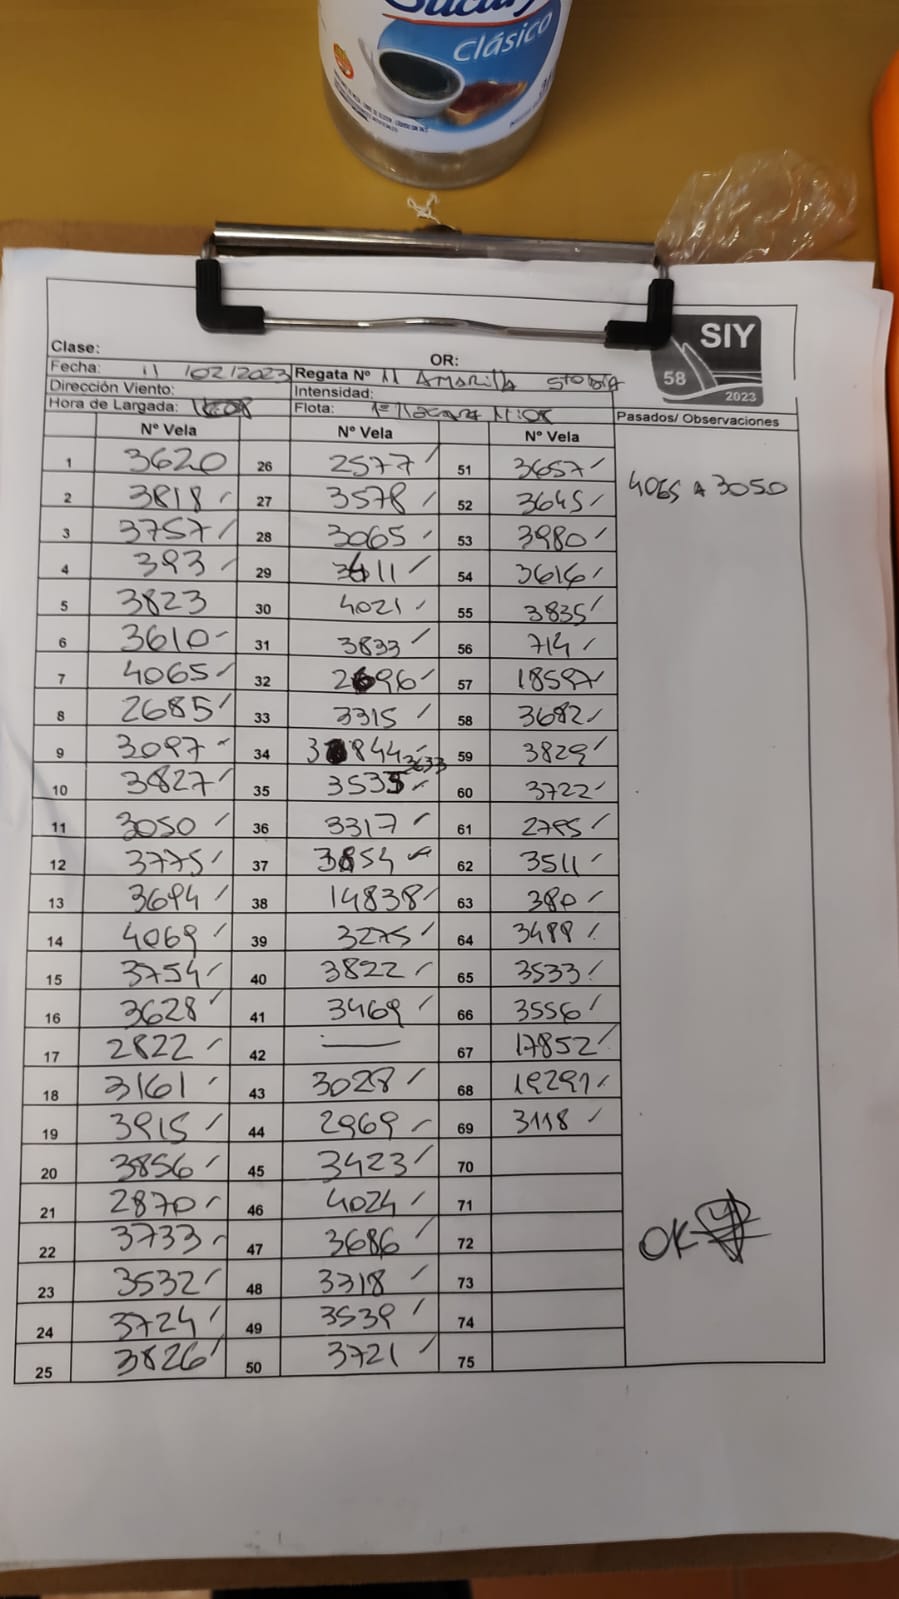 Clásico
SIY
58
2023
Clase:
OR:
Fecha: 11 /02/2023 Regata Nº 11 AMARILLA
Dirección Viento: Intensidad:
Hora de Largada: Flota:
Pasados/ Observaciones
Nº Vela Nº Vela Nº Vela
1 3620 26 2577 51 3657
4065 A 3050
2 3818 27 3578 52 3645
3 3757 28 3065 53 3980
4 393 29 3411 54 3616
5 3823 30 4021 55 3835
6 3610 31 3833 56 714
7 4065 32 2696 57 18597
8 2685 33 3315 58 3682
9 3097 34 3844 59 3829
3633
10 3827 35 3535 60 3722
11 3050 36 3317 61 2795
12 3775 37 3854 62 3511
13 3694 38 14838 63 380
14 4069 39 3275 64 3499
15 3754 40 3822 65 3533
16 3628 41 3469 66 3556
17 2822 42 — 67 17852
18 3161 43 3028 68 19291
19 3915 44 2969 69 3118
20 3856 45 3423 70
21 2870 46 4024 71
22 3733 47 3686 72
OK
23 3532 48 3318 73
24 3724 49 3539 74
25 3826 50 3721 75